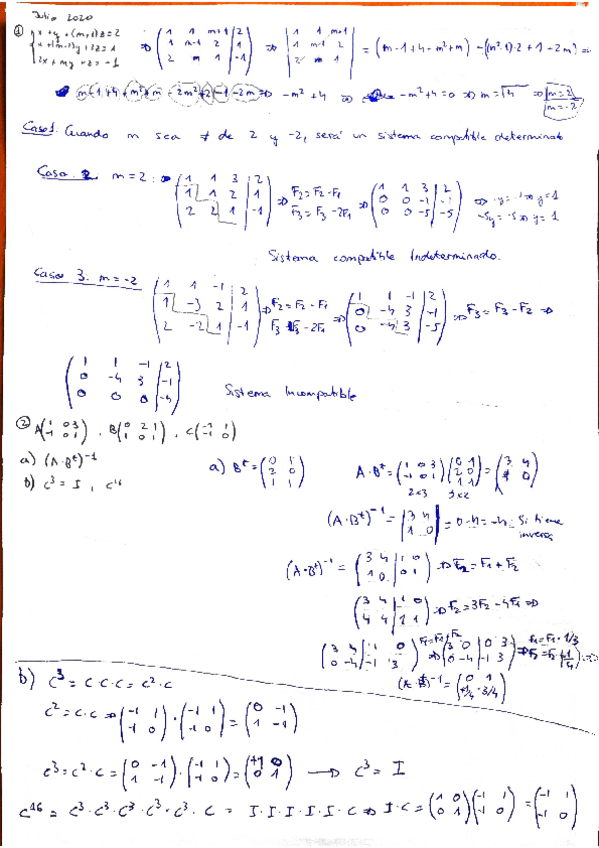 Julio 2020
① x+y+(m+1)z=2
x+(m-1)y+2z=1
2x+my+z=-1
⇒ (1 1 m+1 | 2
1 m-1 2 | 1
2 m 1 | -1) ⇒ |1 1 m+1
1 m-1 2
2 m 1| = (m-1+4-m²+m) - (m²-1)·2+1-2m) =
m-1+4+m²+m-2m²+2-1-2m ⇒ -m²+4 ⇒ -m²+4=0 ⇒ m=√4 ⇒ m=2
m=-2
Caso 1. Cuando m sea ≠ de 2 y -2, será un sistema compatible determinado
Caso 2 m=2: ⇒ (1 1 3 | 2
1 1 2 | 1
2 2 1 | -1) ⇒ F₂=F₂-F₁
F₃=F₃-2F₁ ⇒ (1 1 3 | 2
0 0 -1 | -1
0 0 -5 | -5) ⇒ -y=-1 ⇒ y=1
-5y=-5 ⇒ y=1
Sistema compatible Indeterminado.
Caso 3. m=-2 (1 1 -1 | 2
1 -3 2 | 1
2 -2 1 | -1) ⇒ F₂=F₂-F₁
F₃ F₃-2F₁ ⇒ (1 1 -1 | 2
0 -4 3 | -1
0 -4 3 | -5) ⇒ F₃=F₃-F₂ ⇒
(1 1 -1 | 2
0 -4 3 | -1
0 0 0 | -4) Sistema Incompatible
② A(1 0 3
-1 0 1) . B(0 2 1
1 0 1) . C(-1 1
-1 0)
a) (A·Bᵗ)⁻¹
b) C³=I, C¹⁶
a) Bᵗ=(0 1
2 0
1 1) A·Bᵗ=(1 0 3
-1 0 1)(0 1
2 0
1 1)=(3 4
1 0)
2×3 3×2
(A·Bᵗ)⁻¹=|3 4
1 0|=0-4=-4 Si tiene inversa
(A·Bᵗ)⁻¹=(3 4 | 1 0
1 0 | 0 1) ⇒ F₂=F₁+F₂
(3 4 | 1 0
4 4 | 1 1) ⇒ F₂=3F₂-4F₁ ⇒
(3 4 | 1 0
0 -4 | -1 3) F₁=F₁+F₂ ⇒ (3 0 | 0 3
0 -4 | -1 3) ⇒ F₁=F₁·1/3
(A·Bᵗ)⁻¹=(0 1
+1/4 -3/4)
b) C³=C·C·C=C²·C
C²=C·C ⇒ (-1 1
-1 0)·(-1 1
-1 0)=(0 -1
1 -1)
C³=C²·C=(0 -1
1 -1)·(-1 1
-1 0)=(+1 0
0 1) → C³=I
C¹⁶=C³·C³·C³·C³·C³·C=I·I·I·I·I·C ⇒ I·C=(1 0
0 1)(-1 1
-1 0)=(-1 1
-1 0)